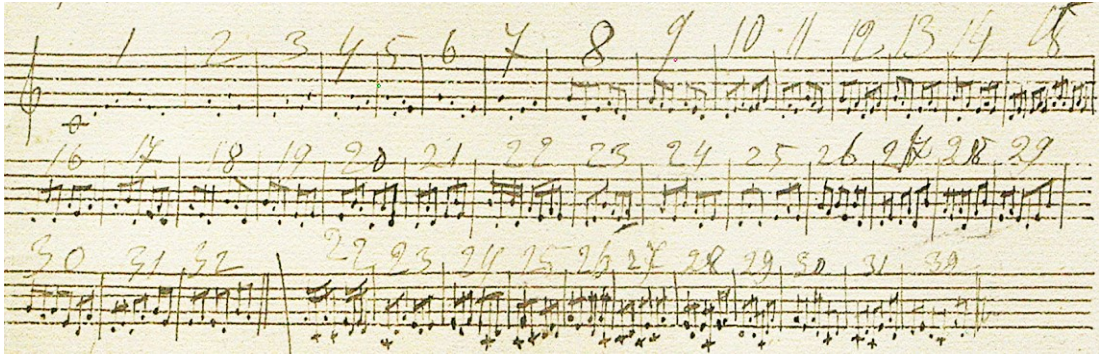 1 2 3 4 5 6 7 8 9 10 11 12 13 14 15
16 17 18 19 20 21 22 23 24 25 26 27 28 29
30 31 32 22 23 24 25 26 27 28 29 30 31 32